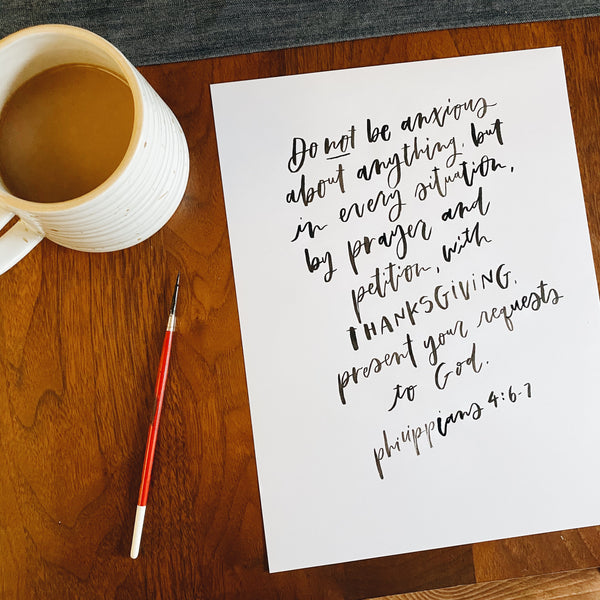 Do not be anxious
about anything, but
in every situation,
by prayer and
petition, with
THANKSGIVING,
present your requests
to God.
philippians 4:6-7